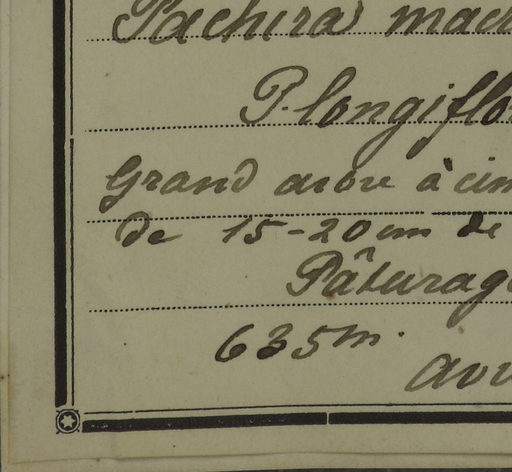 Pachira mac
P. longiflo
Grand arbre à cim
de 15-20 cm de
Pâturag
635m.
avr